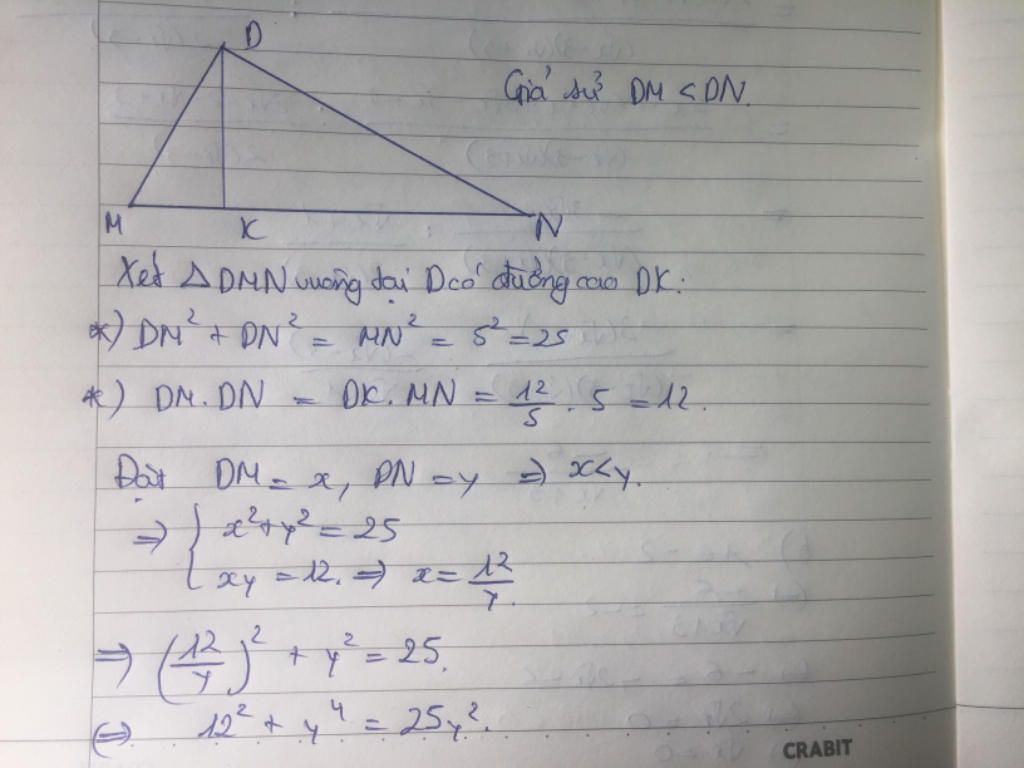 D
Giả sử DM < DN.
M K N
Xét ΔDMN vuông tại D có đường cao DK:
*) DM² + DN² = MN² = 5² = 25
*) DM.DN = DK.MN = 12/5 . 5 = 12.
Đặt DM = x, DN = y ⇒ x < y.
⇒ { x² + y² = 25
xy = 12. ⇒ x = 12/y.
⇒ (12/y)² + y² = 25.
⇔ 12² + y⁴ = 25y².
CRABIT